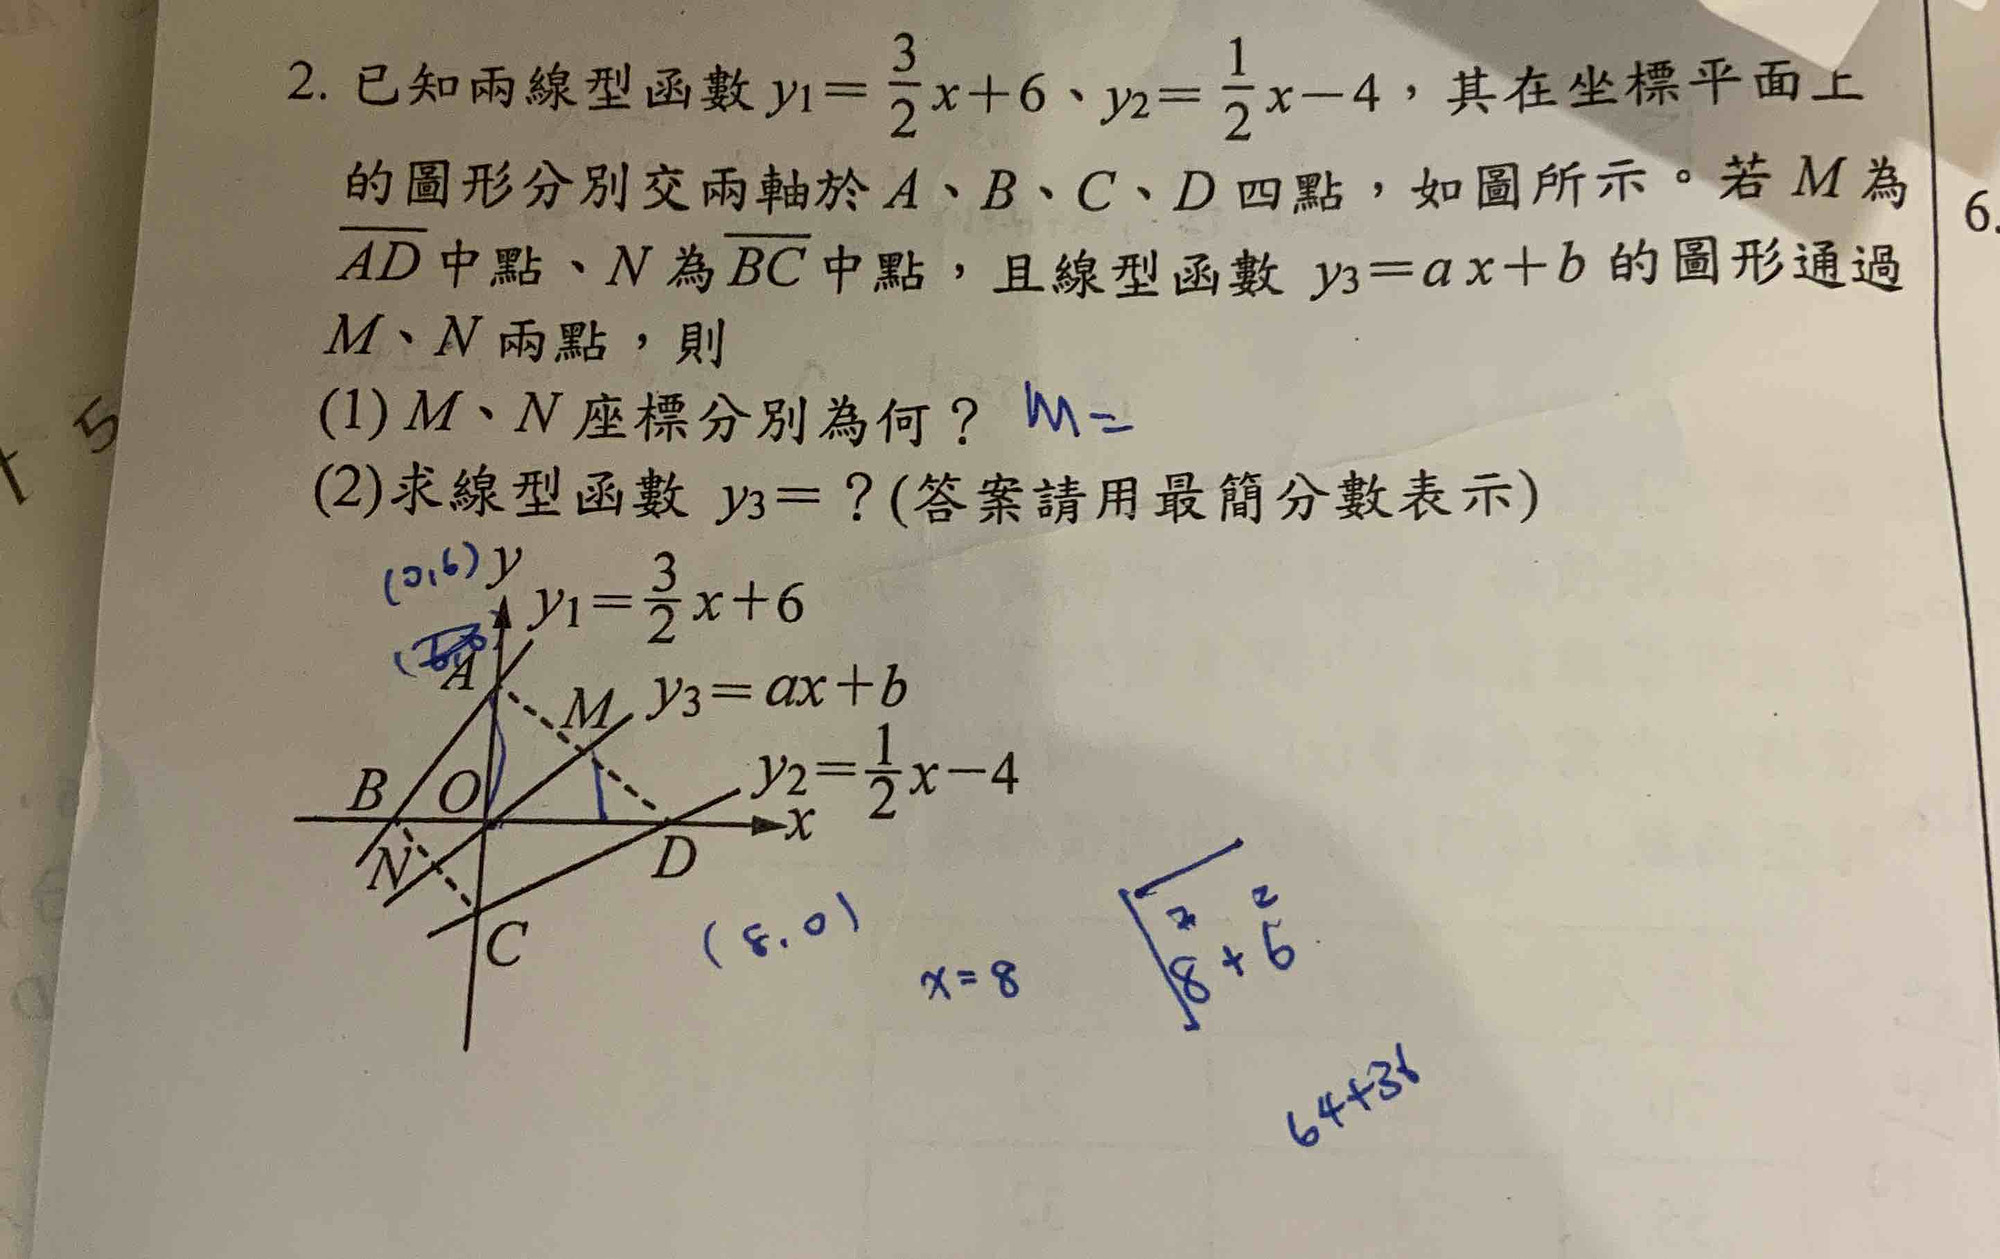 2. 已知兩線型函數 y1＝3/2 x＋6、y2＝1/2 x－4，其在坐標平面上
的圖形分別交兩軸於 A、B、C、D 四點，如圖所示。若 M 為
AD 中點、N 為 BC 中點，且線型函數 y3＝ax＋b 的圖形通過
M、N 兩點，則
(1) M、N 座標分別為何？ M=
(2)求線型函數 y3＝？(答案請用最簡分數表示)
(0,6) y
y1＝3/2 x＋6
A
M y3＝ax＋b
B O y2＝1/2 x－4
x
N D
C
(8,0)
x=8
8²+6²
64+36
6.
5